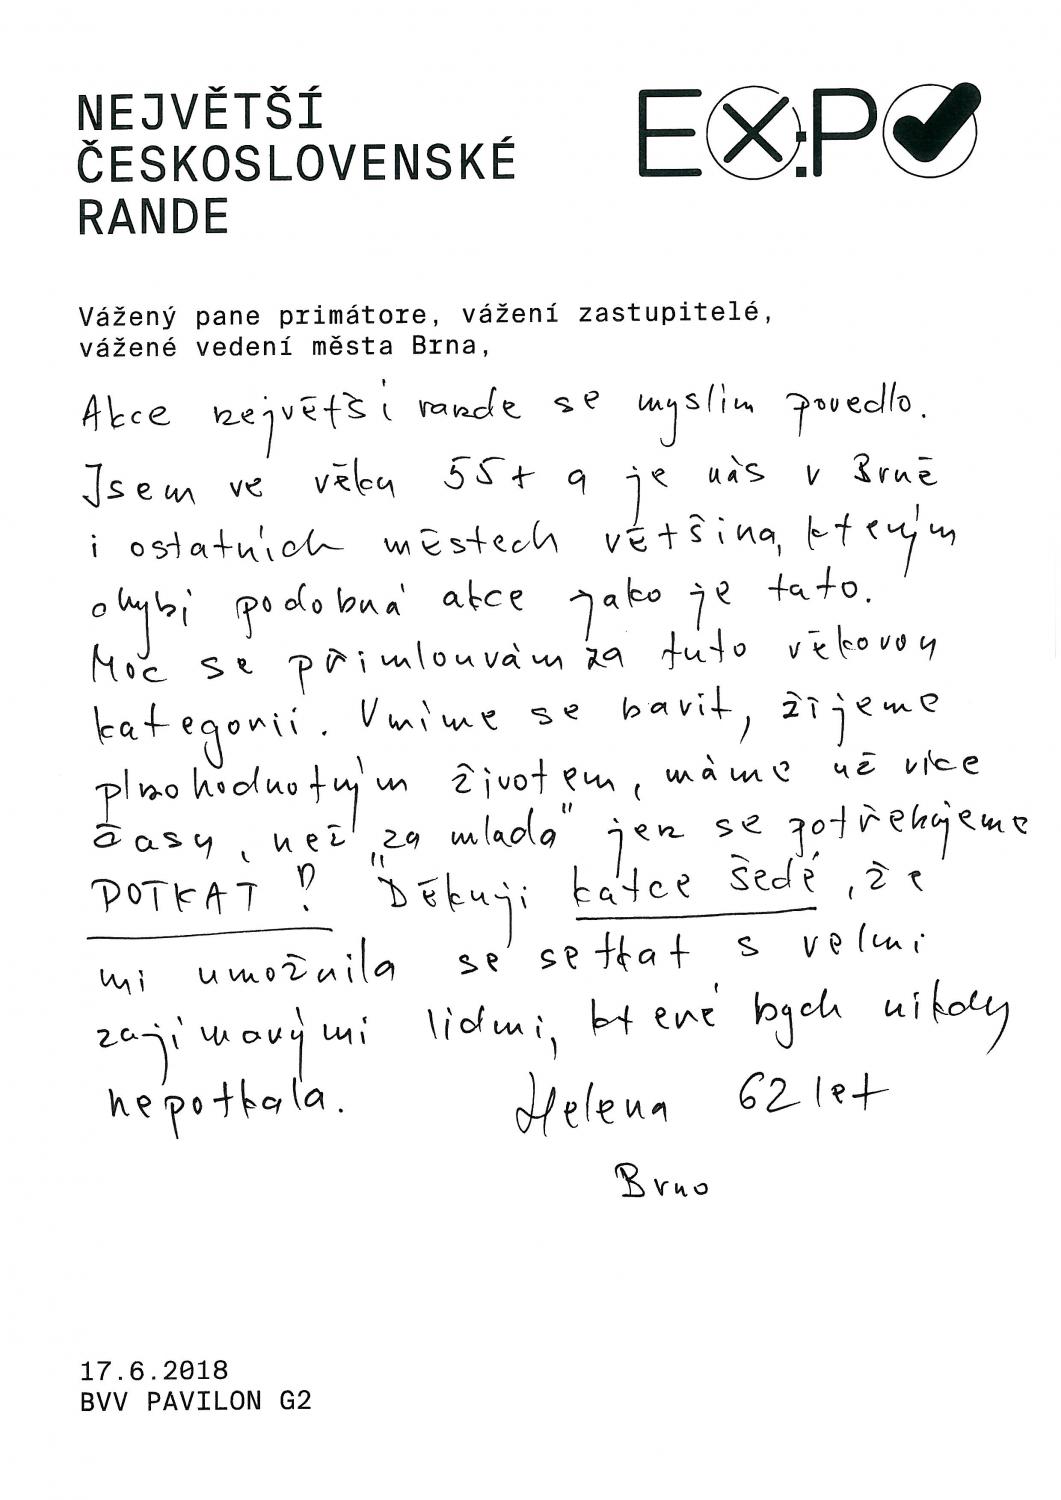 NEJVĚTŠÍ
ČESKOSLOVENSKÉ
RANDE
EX:PO
Vážený pane primátore, vážení zastupitelé,
vážené vedení města Brna,
Akce největší rande se myslím povedlo.
Jsem ve věku 55+ a je nás v Brně
i ostatních městech většina, kterým
chybí podobná akce jako je tato.
Moc se přimlouvám za tuto věkovou
kategorii. Umíme se bavit, žijeme
plnohodnotným životem, máme už více
času, než „za mlada" jen se potřebujeme
POTKAT! Děkuji Katce Šedé, že
mi umožnila se setkat s velmi
zajímavými lidmi, které bych nikdy
nepotkala. Helena 62 let
Brno
17.6.2018
BVV PAVILON G2